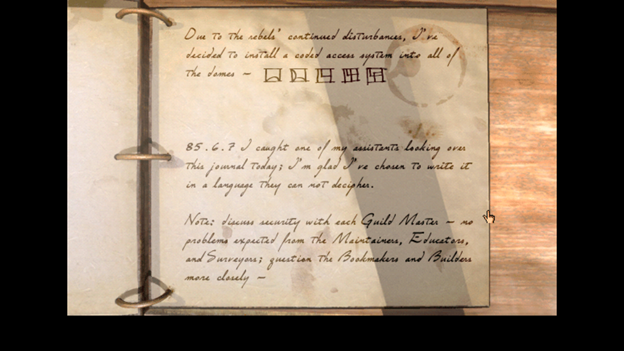 Due to the rebels' continued disturbances, I've
decided to install a coded access system into all of
the domes –
85.6.7 I caught one of my assistants looking over
this journal today; I'm glad I've chosen to write it
in a language they can not decipher.
Note: discuss security with each Guild Master – no
problems expected from the Maintainers, Educators,
and Surveyors; question the Bookmakers and Builders
more closely –